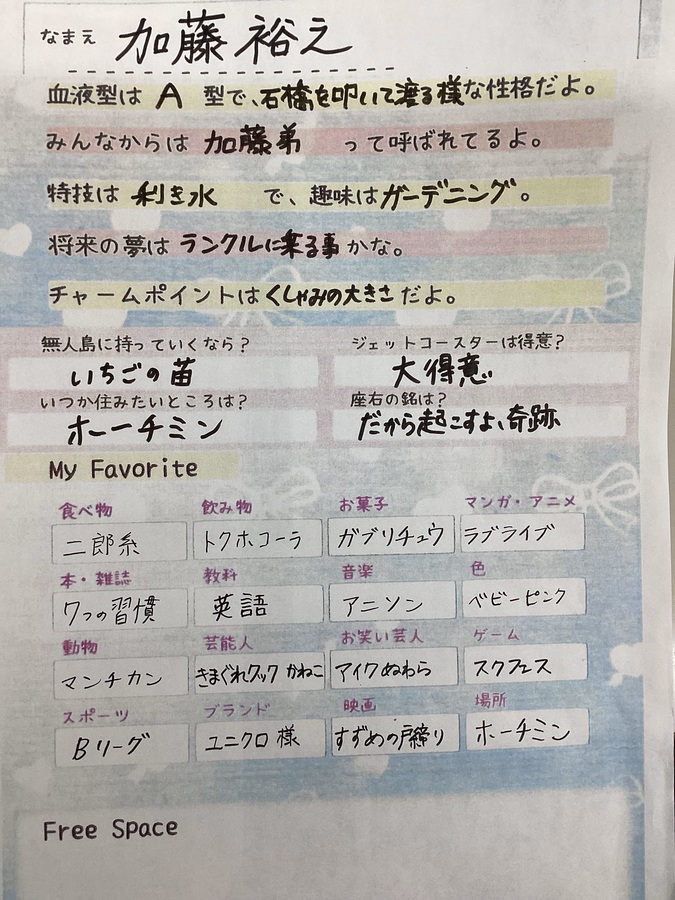 なまえ 加藤 裕え
血液型は A 型で、石橋を叩いて渡る様な性格だよ。
みんなからは 加藤弟 って呼ばれてるよ。
特技は 利き水 で、趣味はガーデニング。
将来の夢は ランクルに乗る事かな。
チャームポイントはくしゃみの大きさだよ。
無人島に持っていくなら? ジェットコースターは得意?
いちごの苗 大得意
いつか住みたいところは? 座右の銘は?
ホーチミン だから起こすよ、奇跡
My Favorite
食べ物 飲み物 お菓子 マンガ・アニメ
二郎系 トクホコーラ ガブリチュウ ラブライブ
本・雑誌 教科 音楽 色
7つの習慣 英語 アニソン ベビーピンク
動物 芸能人 お笑い芸人 ゲーム
マンチカン きまぐれクック かねこ アイクぬわら スクフェス
スポーツ ブランド 映画 場所
Bリーグ ユニクロ様 すずめの戸締り ホーチミン
Free Space